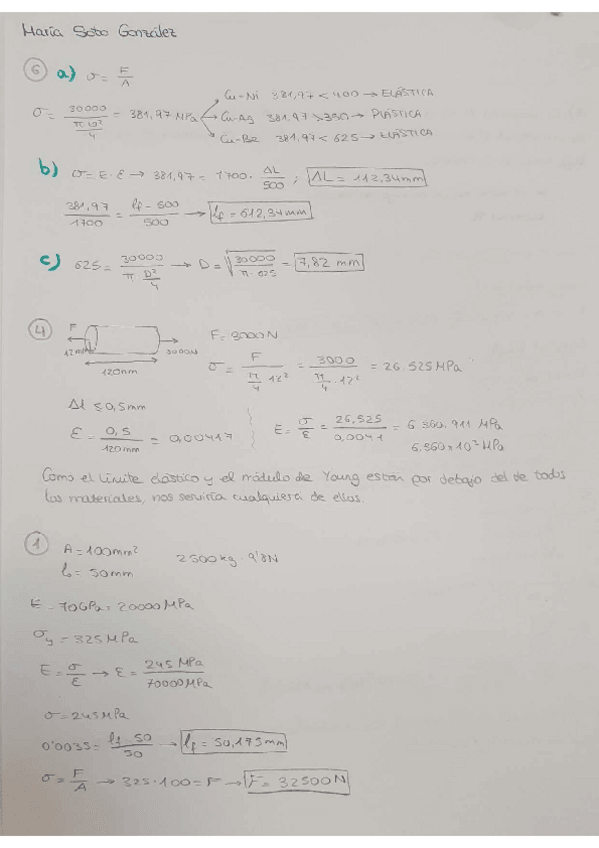 María Soto González
6 a) σ = F/A
σ = 30000/(π·10²/4) = 381,97 MPa
Cu-Ni 381,97 < 400 → ELÁSTICA
Cu-Ag 381,97 > 350 → PLÁSTICA
Cu-Be 381,97 < 625 → ELÁSTICA
b) σ = E · ε → 381,97 = 1700 · ΔL/500 ; ΔL = 112,34mm
381,97/1700 = (lf - 500)/500 → lf = 612,34mm
c) 625 = 30000/(π · D²/4) → D = √(30000/(π · 625)) = 7,82 mm
4 F 12mm 3000N 120mm
F = 3000N
σ = F/(π/4 · 12²) = 3000/(π/4 · 12²) = 26.525 MPa
Δl ≤ 0,5mm
ε = 0,5/120mm = 0,00417
E = σ/ε = 26,525/0,0041 = 6.360,911 MPa
6,360 x 10³ MPa
Como el límite elástico y el módulo de Young están por debajo del de todos
los materiales, nos serviría cualquiera de ellos.
1 A = 100mm² 2500kg · 9'8N
l₀ = 50mm
E = 70GPa = 20000 MPa
σy = 325 MPa
E = σ/ε → ε = 245 MPa/70000 MPa
σ = 245 MPa
0'0035 = (lf - 50)/50 → lf = 50,175mm
σ = F/A → 325 · 100 = F → F = 32500N